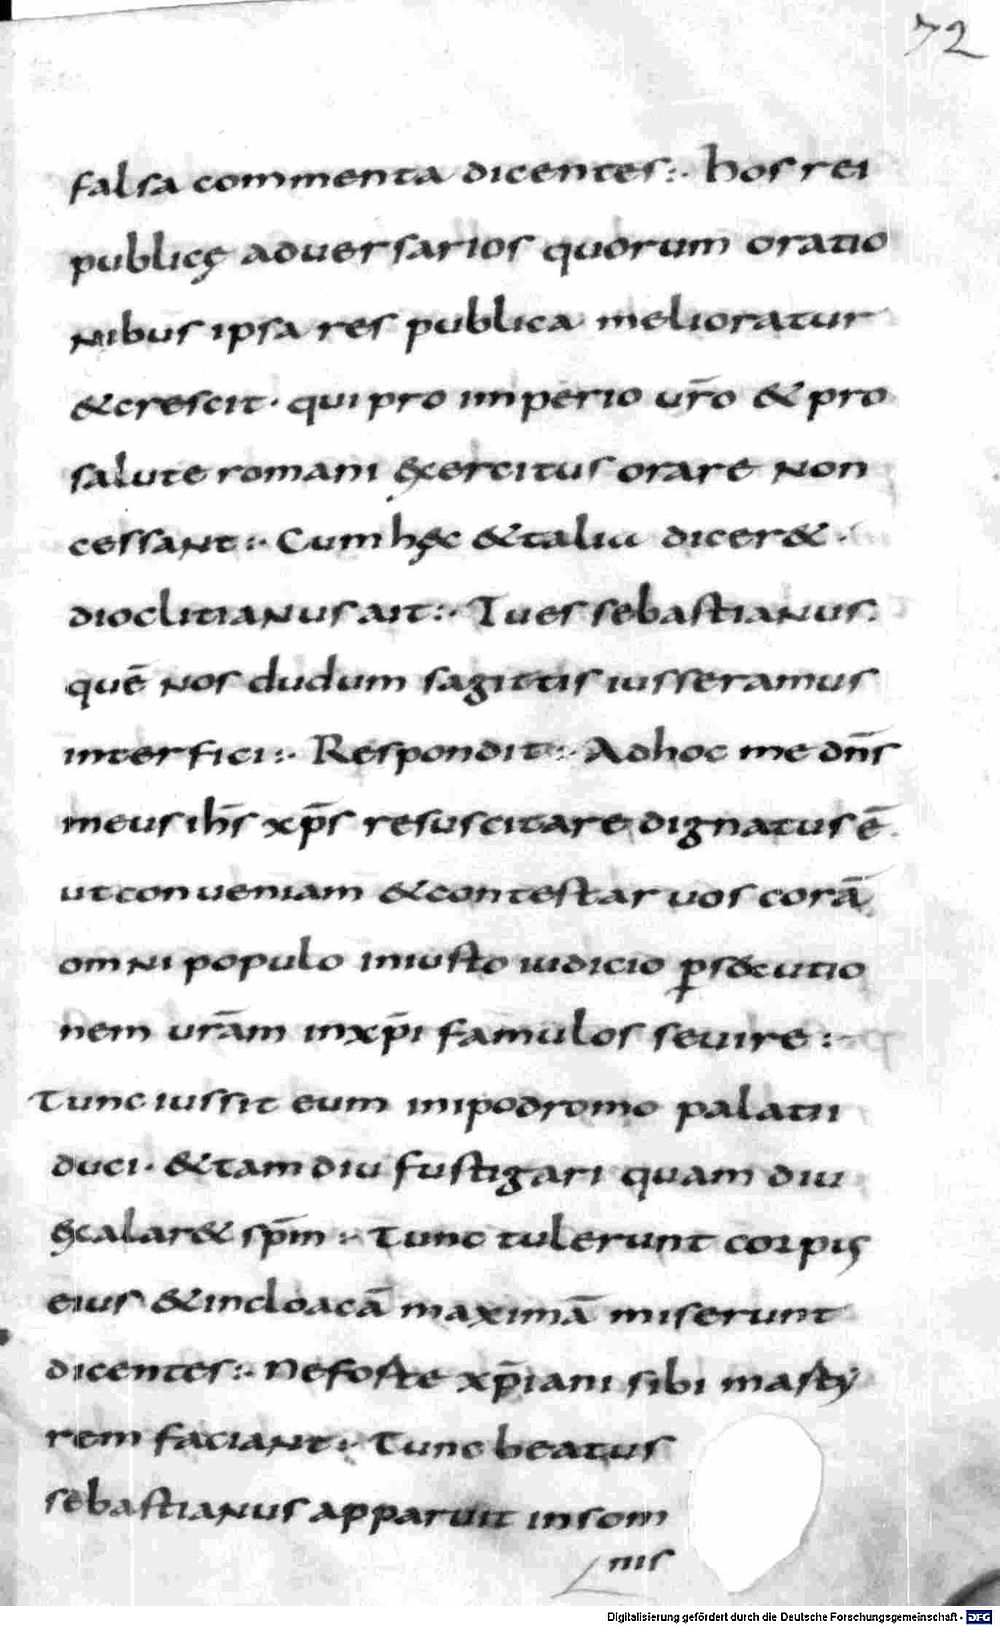 72
falsa commenta dicentes:· hos rei
publicę aduersarios quorum oratio
nibus ipsa res publica melioratur
&crescit· qui pro imperio ur̄o & pro
salute romani ęxercitus orare non
cessant:· Cum hęc &talia dicer&·
dioclitianus ait:· Tu es sebastianus·
quē nos dudum sagittis iusseramus
interfici:· Respondit:· Ad hoc me dn̄s
meus ih̄s xp̄s resuscitare dignatus ē·
ut conueniam &contestar uos corā
omni populo iniusto iudicio p̱secutio
nem urām in xp̄i famulos seuire:·
Tunc iussit eum inipodromo palatii
duci· &tam diu fustigari quam diu
ęxalar& sp̄m:· Tunc tulerunt corpus
eius &incloacā maximā miserunt
dicentes:· Ne forte xp̄iani sibi marty
rem faciant:· Tunc beatus
sebastianus apparuit insom
nis
Digitalisierung gefördert durch die Deutsche Forschungsgemeinschaft - DFG